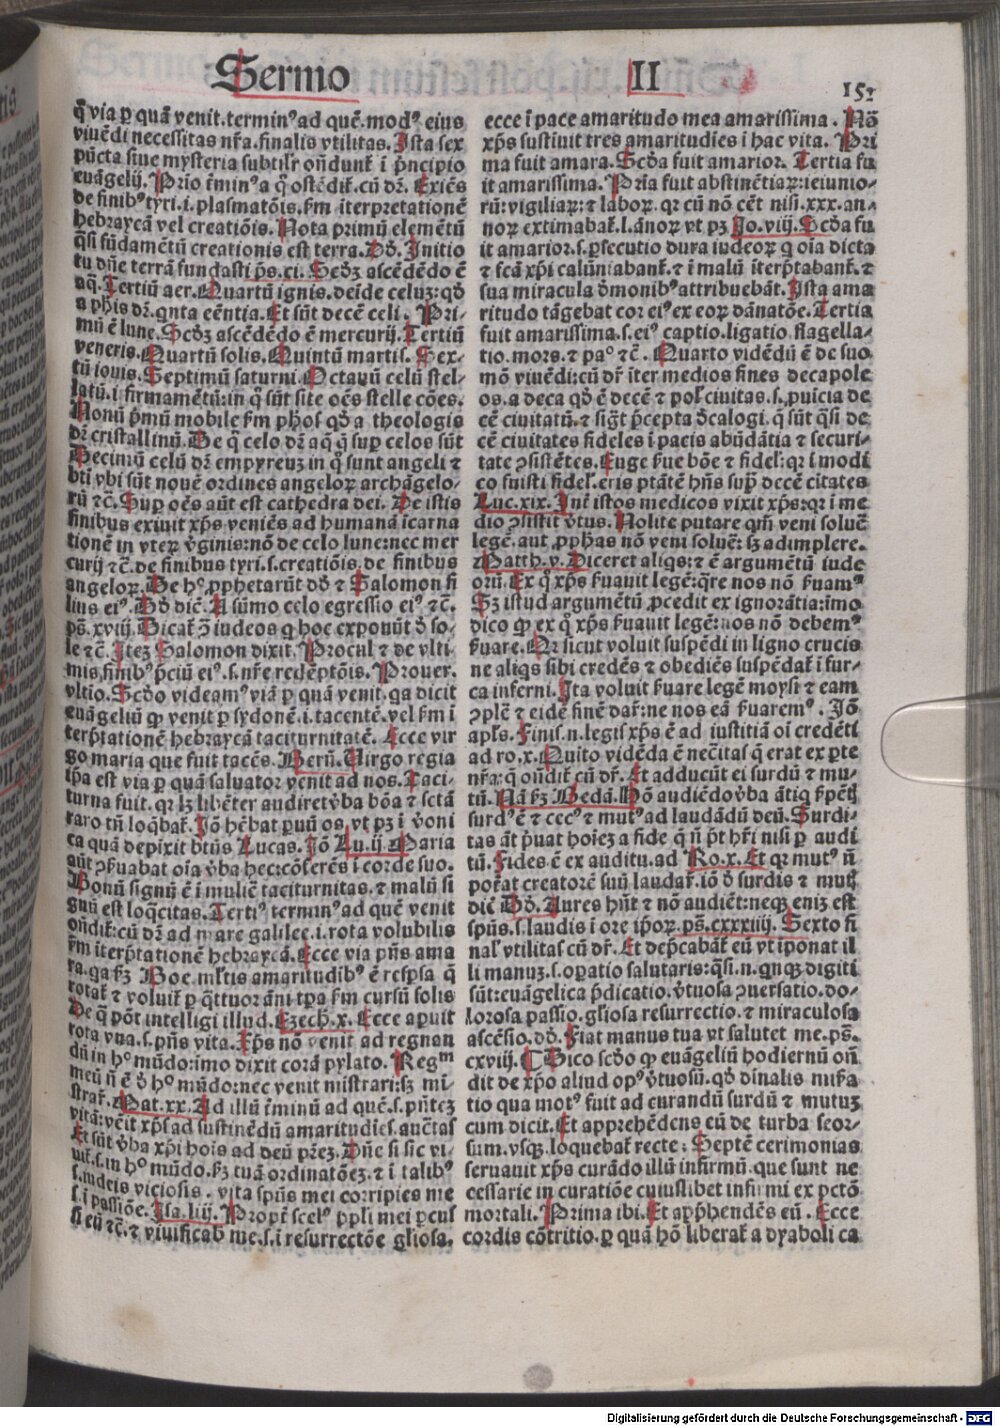 Sermo II 151
q̃ via ꝑ quã venit.termin⁹ ad quẽ.mod⁹ eius
viuẽdi necessitas nr̃a.finalis vtilitas. Ista sex
pũcta siue mysteria subtilr̃ oñdunt̃ ĩ p̃ncipio
euãgelij. Prĩo t̃min⁹ a q̃ ostẽdit̃.cũ dr̃. Exiẽs
de finib⁹ tyri.i.plasmatõis.ẜm ĩterpretationẽ
hebraycã vel creatiõis. Nota primũ elemẽtũ
q̃si fũdamẽtũ creationis est terra. Dõ. Initio
tu dñe terrã fundasti ps̃.ci. Scďz ascẽdẽdo ẽ
aq̃. Tertiũ aer. Quartũ ignis.deĩde celuz: qď
a ph̃is dr̃.qnta eẽntia. Et sũt decẽ celi. Pri-
mũ ẽ lune. Scďz ascẽdẽdo ẽ mercurij. Tertiũ
veneris. Quartũ solis. Quintũ martis. Sex-
tũ iouis. Septimũ saturni. Octauũ celũ stel-
latũ.i firmamẽtũ: in q̃ sũt site oẽs stelle cões.
Nonũ p̃mũ mobile ẜm ph̃os qď a theologis
dr̃ cristallinũ. De q̃ celo dr̃ aq̃ q̃ suꝑ celos sũt
Decimũ celũ dr̃ empyreuz in q̃ sunt angeli ⁊
bti vbi sũt nouẽ ordines angeloꝝ archãgelo-
rũ ⁊c̃. Suꝑ oẽs aũt est cathedra dei. De istis
finibus exiuit xp̃s veniẽs ad humanã icarna
tionẽ in vteꝝ v̓ginis: nõ de celo lune: nec mer
curij ⁊c̃.de finibus tyri.s.creatiõis de finibus
angeloꝝ. De h⁹ ꝓphetarũt dõ ⁊ Salomon fi
lius ei⁹. Dõ dic̃. A sũmo celo egressio ei⁹ ⁊c̃.
ps̃.xviij. Dicat̃ ꝯ̃ iudeos q̃ hoc exponũt ď so-
le ⁊c̃. Itez Salomon dixit. Procul ⁊ de vlti-
mis finib⁹ p̃ciũ ei⁹.s.nr̃e redẽptõis. Prouer.
vltio. Scďo videam⁹ viã ꝑ quã venit.qa dicit
euãgeliũ qꝫ venit ꝑ sydonẽ.i.tacentẽ.vel ẜm i
terp̃tationẽ hebraycã taciturnitatẽ. Ecce vir
go maria que fuit tacẽs. Berñ. Virgo regia
ip̃a est via ꝑ quã saluator venit ad nos. Taci-
turna fuit.qꝛ lꝫ libẽter audiret v̓ba bõa ⁊ sctã
raro tñ loq̃bat̃. Jõ hẽbat ꝑuũ os.vt pꝫ i v̓oni
ca quã depixit bt̃us Lucas. Jõ Lu.ij. Maria
aũt ꝯẜuabat oĩa v̓ba hec: cõferẽs i corde suo.
Bonũ signũ ẽ i muliẽ taciturnitas.⁊ malũ si
gnũ est loq̃citas. Terti⁹ termin⁹ ad quẽ venit
oñdit̃: cũ dr̃ ad mare galilee.i.rota volubilis
ẜm iterp̃tationẽ hebraycã. Ecce via pñs ama
ra.qa ẜꝫ Boe.ml̃tis amaritudib⁹ ẽ resp̃sa q̃
rotat̃ ⁊ voluit̃ ꝑ q̃ttuor ãni tp̃a ẜm cursũ solis
De q̃ põt intelligi illud. Ezech.x. Ecce apuit
rota vna.s.pñs vita. Xp̃s nõ venit ad regnan
dũ in h⁹ mũdo: imo dixit corã pylato. Regm̃
meũ ñ ẽ ď h⁹ mũdo: nec venit mistrari: sꝫ mi-
strar̃. Mat.xx. Ad illũ t̃minũ ad quẽ.s.pñtez
vitã: veit xp̃s ad sustinẽdũ amaritudies.auctas
Et sũt v̓ba xp̃i hois ad deũ prẽz. Dñe si sic vi-
uit̃.s.in h⁹ mũdo.ẜꝫ tuã ordinatõez.⁊ i talib⁹
s.iudeis viciosis.vita sp̃us mei corripies me
s.i passiõe. Isa.liij. Propt̃ scel⁹ ppl̃i mei ꝑcus
si eũ ⁊c̃.⁊ viuificab̃ me.s.i resurrectõe gliosa.
ecce ĩ pace amaritudo mea amarissima. Nõ
xp̃s sustinuit tres amaritudies i hac vita. Pri
ma fuit amara. Scďa fuit amarior. Tertia fu
it amarissima. Prĩa fuit abstinẽtiaꝝ: ieiunio-
rũ: vigiliaꝝ: ⁊ laboꝝ.qꝛ cũ nõ cẽt nisi.xxx.an-
noꝝ extimabat̃.l.ãnoꝝ vt pꝫ Jo.viij. Scďa fu
it amarior.s.ꝑsecutio dura iudeoꝝ q̃ oĩa dicta
⁊ fc̃ã xp̃i calũniabant̃.⁊ i malũ iterp̃tabant̃.⁊
sua miracula ďmonib⁹ attribuebãt. Ista ama
ritudo tãgebat cor ei⁹ ex eoꝝ dãnatõe. Tertia
fuit amarissima.s.ei⁹ captio.ligatio.flagella-
tio.mors.⁊ pa⁰ ⁊c̃. Quarto vidẽdũ ẽ de suo
mõ viuẽdi: cũ dr̃ iter medios fines decapole
os.a deca qď ẽ decẽ ⁊ pol̃ ciuitas.s.ꝓuicia de
cẽ ciuitatũ.⁊ sigt̃ p̃cepta ďcalogi.q̃ sũt q̃si de
cẽ ciuitates fideles i pacis abũdãtia ⁊ securi-
tate ꝯsistẽtes. Euge ẜue bõe ⁊ fidel̃: qꝛ i modi
co fuisti fidel̃.eris ptãtẽ hñs supꝰ decẽ citates
Luc.xix. Int̃ istos medicos vixit xp̃s: qꝛ i me
dio ꝯsistit v̓tus. Nolite putare qm̃ veni soluẽ
legẽ.aut ꝓphas nõ veni soluẽ: sꝫ adimplere.
Matth.v. Diceret aliqs: ⁊ ẽ argumẽtũ iude
orũ. Ex q̃ xp̃s ẜuauit legẽ: q̃re nos nõ ẜuam⁹
Sꝫ istud argumẽtũ ꝓcedit ex ignorãtia: imo
dico qꝫ ex q̃ xp̃s ẜuauit legẽ: nos nõ debem⁹
ẜuare. Qꝛ sicut voluit suspẽdi in ligno crucis
ne aliqs sibi credẽs ⁊ obediẽs suspẽdat̃ i fur-
ca inferni. Ita voluit ẜuare legẽ moysi ⁊ eam
ꝯplẽ ⁊ eidẽ finẽ dar̃: ne nos eã ẜuarem⁹. Jõ
apl̃s. Finis.n.legis xp̃s ẽ ad iustitiã oĩ credẽti
ad ro.x. Quito vidẽda ẽ nec̃itas q̃ erat ex ꝑte
nr̃a: q̃ oñdit̃ cũ dr̃. Et adducũt ei surdũ ⁊ mu-
tũ. Nã ẜꝫ Bedã. Nõ audiẽdo v̓ba ãtiq̃ ẜpẽtꝭ
surd⁹ ẽ ⁊ cec⁹ ⁊ mut⁹ ad laudãdũ deũ. Surdi-
tas ãt p̃uat hoiez a fide q̃ ñ põt hr̃i nisi ꝑ audi
tũ. Fides ẽ ex auditu.ad Ro.x. Et qꝛ mut⁹ ñ
potat̃ creatorẽ suũ laudar̃.iõ ď surdis ⁊ mutꝭ
dic̃ Dõ. Aures hñt ⁊ nõ audiẽt: neqꝫ eniz est
sp̃us.s.laudis i ore ip̃oꝝ.ps̃.cxxxiiij. Sexto fi
nal̃ vtilitas cũ dr̃. Et dep̃cabãt̃ eũ vt iponat il
li manuz.s.oꝑatio salutaris: q̃si.n.qnqꝫ digiti
sũt: euãgelica p̃dicatio.v̓tuosa ꝯuersatio.do-
lorosa passio.gliosa resurrectio.⁊ miraculosa
ascẽsio.dõ. Fiat manus tua vt saluet me.ps̃.
cxviij. ¶ Dico scďo qꝫ euãgeliũ hodiernũ oñ
dit de xp̃o aliud op⁹ v̓tuosũ.qď dinalis misẽa
tio qua mot⁹ fuit ad curandũ surdũ ⁊ mutuz
cum dicit. Et apprehẽdens eũ de turba seor-
sum.vsqꝫ.loquebat̃ recte: Septẽ cerimonias
seruauit xp̃s curãdo illũ infirmũ.que sunt ne
cessarie in curatiõe cuiuslibet infirmi ex pctõ
mortali. Prima ibi. Et app̃hendẽs eũ. Ecce
cordis cõtritio.ꝑ quã hõ liberat̃ a dyaboli ca
Digitalisierung gefördert durch die Deutsche Forschungsgemeinschaft - DFG